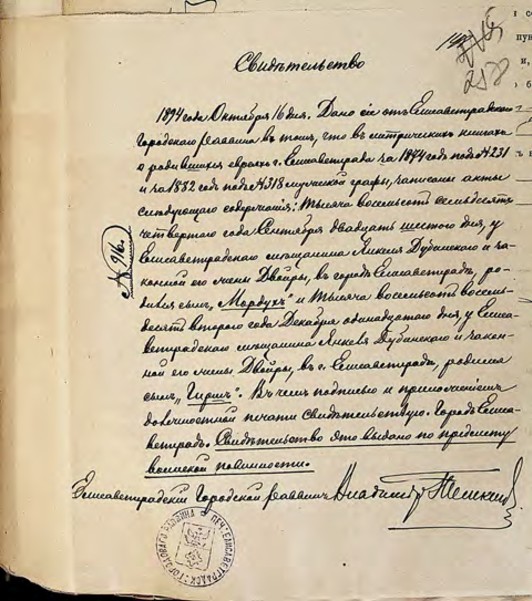 Свидѣтельство
1894 года Октября 16 дня. Дано сіе отъ Елисаветградскаго
Городскаго раввина въ томъ, что въ метрическихъ книгахъ
о родившихся евреяхъ г. Елисаветграда за 1874 годъ подъ № 231
и за 1882 годъ подъ № 318 мужеской графы, записаны акты
слѣдующаго содержанія: Тысяча восемьсотъ семьдесятъ
четвертаго года Сентября двадцать шестого дня, у
Елисаветградскаго мѣщанина Янкеля Дубинскаго и за-
конной его жены Двейры, въ городѣ Елисаветградѣ, ро-
дился сынъ „Мордухъ" и Тысяча восемьсотъ восемь-
десятъ второго года Декабря одинадцатаго дня, у Елиса-
ветградскаго мѣщанина Янкеля Дубинскаго и закон-
ной его жены Двейры, въ г. Елисаветградѣ, родился
сынъ „Гиршъ". Въ чемъ подписью и приложеніемъ
должностной печати свидѣтельствую. Городъ Елиса-
ветградъ. Свидѣтельство это выдано по предмету
воинской повинности.
Елисаветградскій Городской раввинъ Владиміръ
№ 916
218